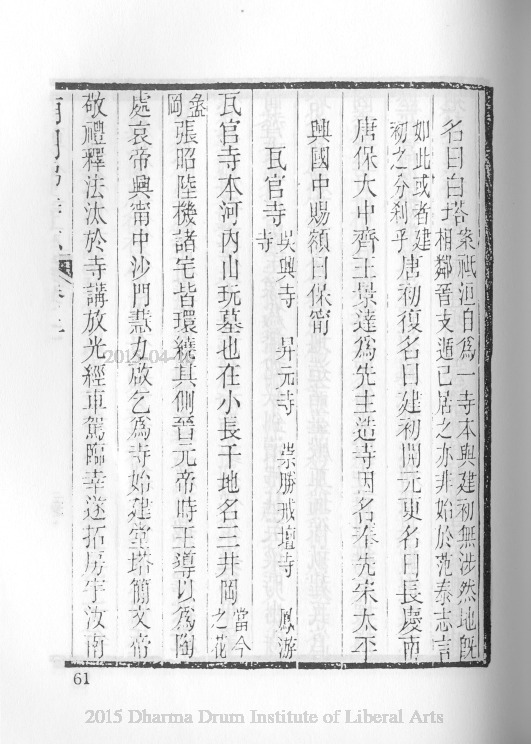 名曰白塔案祇洹自爲一寺本與建初無涉然地旣相鄰晉支遁已居之亦非始於范泰志言
如此或者建初之分刹乎唐初復名曰建初開元更名曰長慶南
唐保大中齊王景達爲先主造寺因名奉先宋太平
興國中賜額曰保甯
瓦官寺吳興寺 昇元寺 崇勝戒壇寺 鳳游寺
瓦官寺本河內山玩墓也在小長干地名三井岡當今之花
盝岡張昭陸機諸宅皆環繞其側晉元帝時王導以爲陶
處哀帝興甯中沙門慧力啟乞爲寺始建堂塔簡文帝
敬禮釋法汰於寺講放光經車駕臨幸遂拓房宇汝南
61
2015-04-
2015 Dharma Drum Institute of Liberal Arts